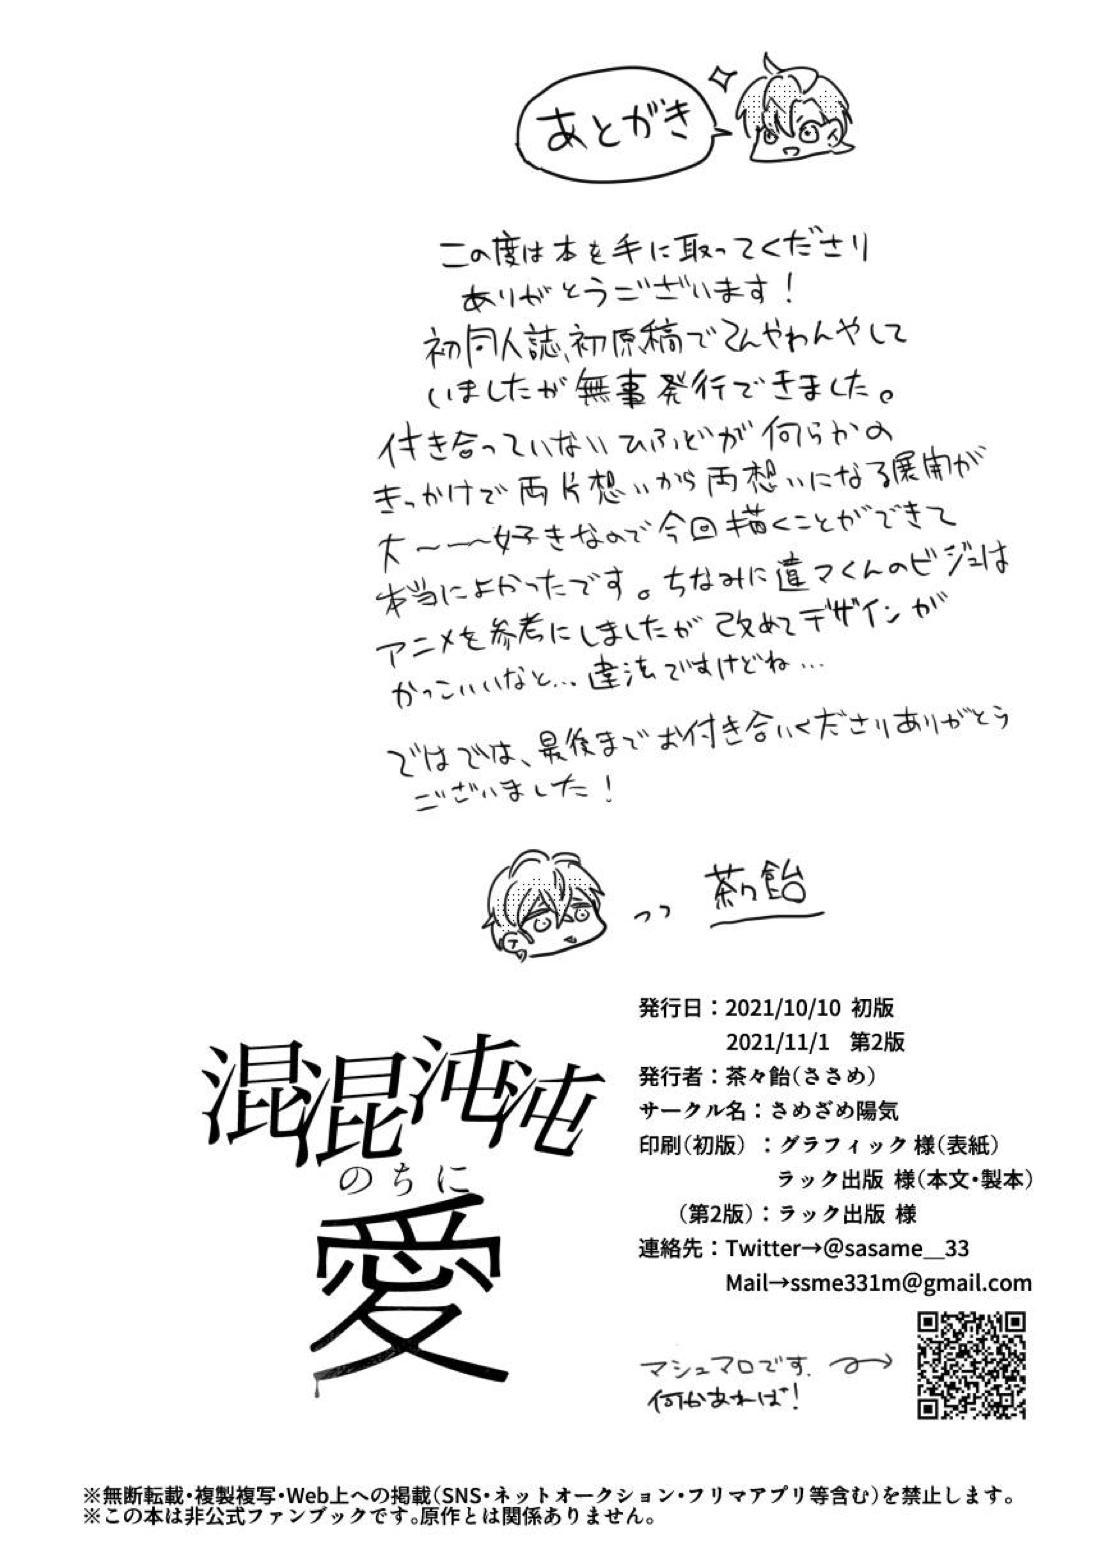 あとがき
この度は本を手に取ってくださり
ありがとうございます!
初同人誌、初原稿でてんやわんやして
いましたが無事発行できました。
付き合っていないひふどが何らかの
きっかけで両片想いから両想いになる展開が
大〜〜〜好きなので今回描くことができて
本当によかったです。ちなみに違マくんのビジュは
アニメを参考にしましたが改めてデザインが
かっこいいなと…違法ですけどね…
ではでは、最後までお付き合いくださりありがとう
ございました!
茶々飴
混混沌沌
のちに
愛
発行日:2021/10/10 初版
2021/11/1 第2版
発行者:茶々飴(ささめ)
サークル名:さめざめ陽気
印刷(初版):グラフィック 様(表紙)
ラック出版 様(本文・製本)
(第2版):ラック出版 様
連絡先:Twitter→@sasame__33
Mail→ssme331m@gmail.com
マシュマロです。
何かあれば!
※無断転載・複製複写・Web上への掲載(SNS・ネットオークション・フリマアプリ等含む)を禁止します。
※この本は非公式ファンブックです。原作とは関係ありません。